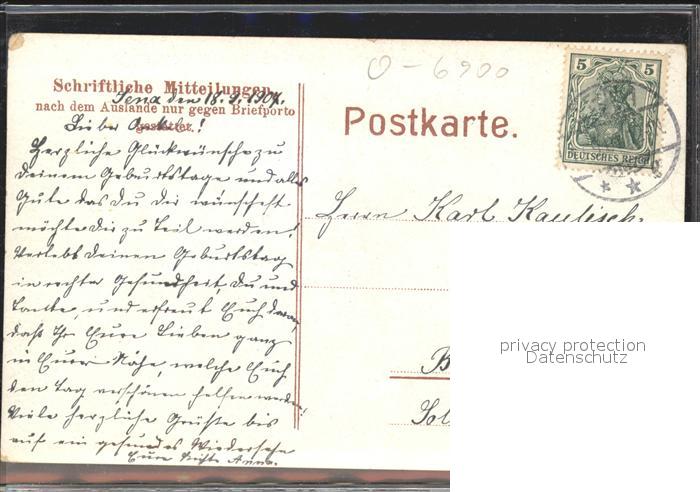 O-6900
5 5
DEUTSCHES REICH
Schriftliche Mitteilungen
Jena den 18.2.1907.
nach dem Auslande nur gegen Briefporto
gestattet.
Postkarte.
Lieber Onkel!
Herzliche Glückwünsche zu
deinem Geburtstage und alles
Gute das du dir wünschest
möchte dir zu Teil werden!
Verlebe deinen Geburtstag
in rechter Gesundheit, du und
Tante, und erfreut Euch daran,
daß Ihr Eure Lieben ganz
in Eurer Nähe, welche Euch
den Tag verschönen helfen werden!
Viele herzliche Grüße bis
auf ein gesundes Wiedersehn
Eure Nichte Anna.
Herrn Karl Kaulisch
privacy protection
Datenschutz